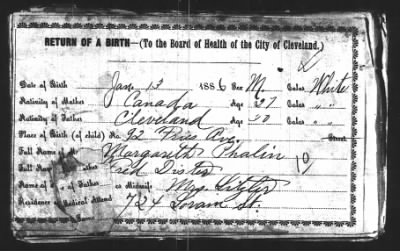 RETURN OF A BIRTH—(To the Board of Health of the City of Cleveland.)
Date of Birth Jan 13 1886 Sex M. Color White
Nativity of Mother Canada Age 27 Color " "
Nativity of Father Cleveland Age 30 Color " "
Place of Birth (of child) No. 92 Ave Street
Full Name of M Margareth Thalin
Full Name Fred Dister
Name of or Father or Midwife Mrs
Residence of Medical Attend 724 Lorain St.